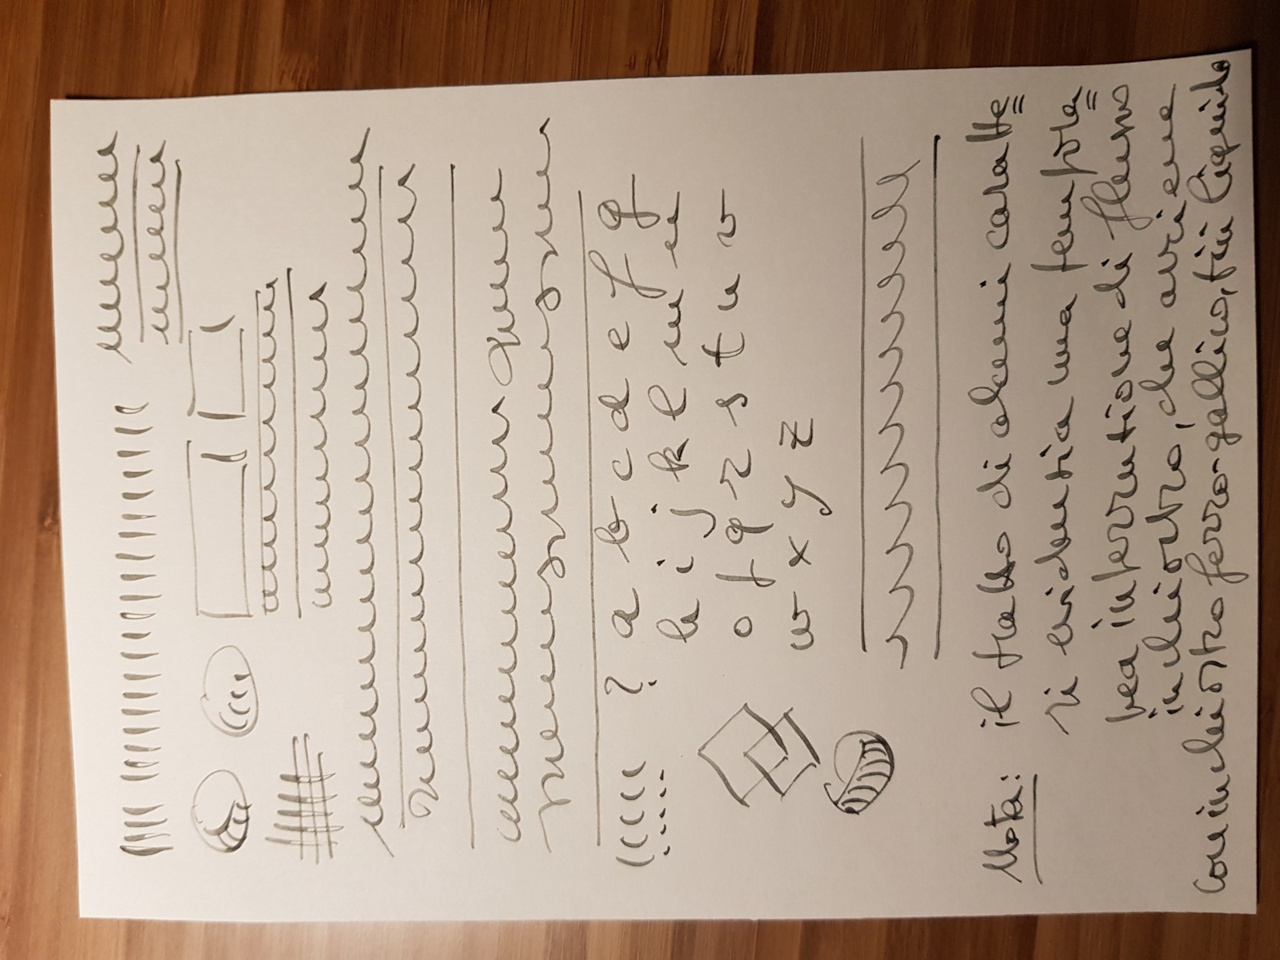 ? a b c d e f g
h i j k l m n
o p q r s t u v
w x y z
Nota: il tratto di alcuni caratte=
ri evidenzia una tempora=
nea interruzione di flusso
inchiostro, che avviene
con inchiostro ferro-gallico, più liquido